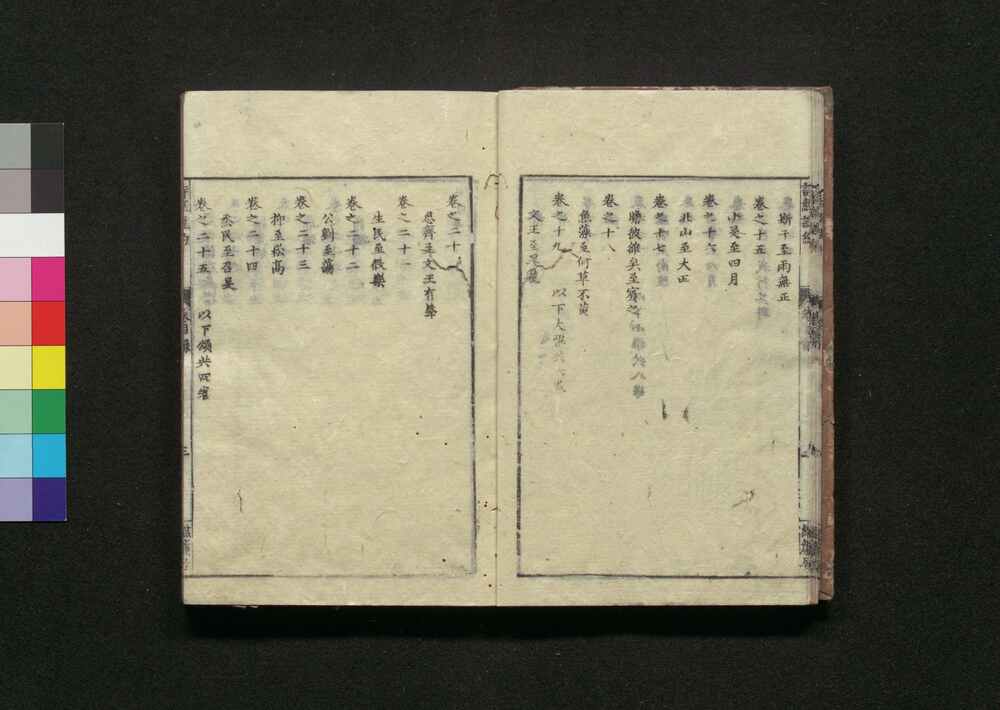 斯干至雨無正
卷之十五
小旻至四月
卷之十六
北山至大正
卷之十七
瞻彼雒矣至賓之
卷之十八
魚藻至何草不黃
卷之十九 以下大雅共
文王至
卷之二十
思齊至文王有聲
卷之二十一
生民至假樂
卷之二十二
公劉至蕩
卷之二十三
抑至崧高
卷之二十四
烝民至召旻
卷之二十五 以下頌共四卷
三